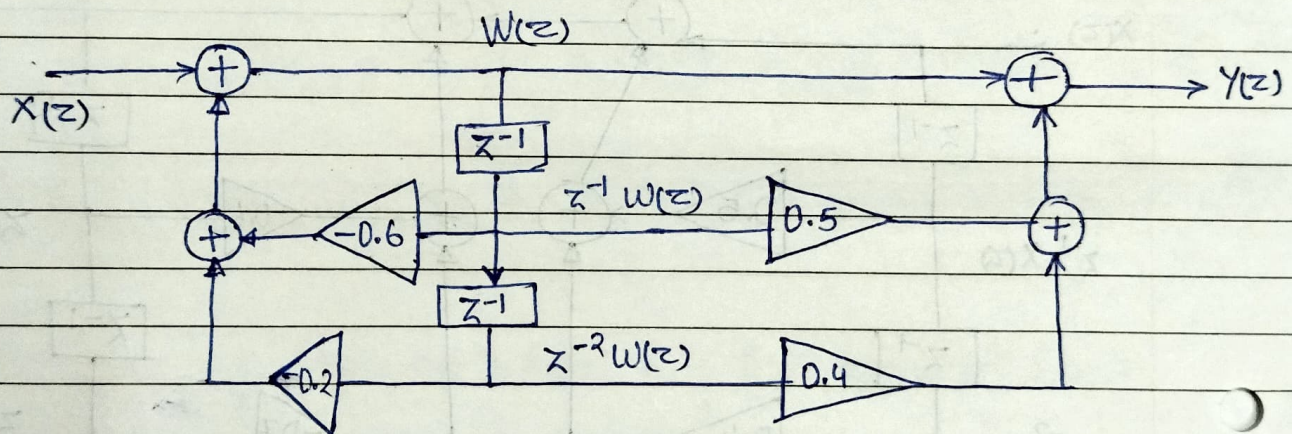 W(z)
X(z) + + Y(z)
z⁻¹
z⁻¹ W(z)
+ -0.6 0.5 +
z⁻¹
z⁻² W(z)
-0.2 0.4